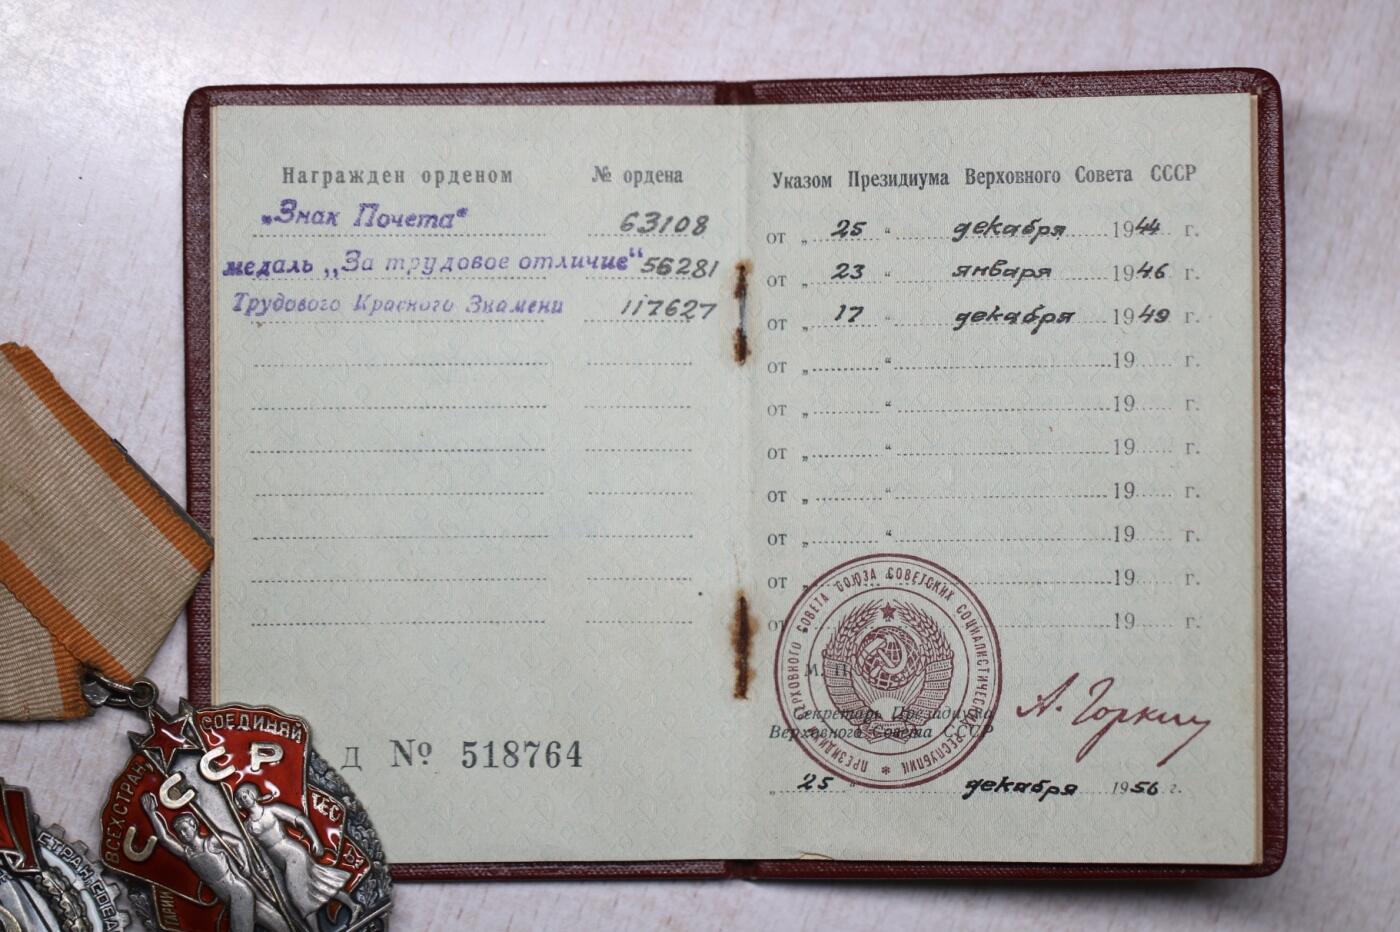 Награжден орденом № ордена
„Знак Почета“ 63108
медаль „За трудовое отличие“ 56281
Трудового Красного Знамени 117627
Д № 518764
Указом Президиума Верховного Совета СССР
от „ 25 “ декабря 1944 г.
от „ 23 “ января 1946 г.
от „ 17 “ декабря 1949 г.
от „ “ 19 г.
от „ “ 19 г.
от „ “ 19 г.
от „ “ 19 г.
от „ “ 19 г.
от „ “ 19 г.
от „ “ 19 г.
М. П.
Секретарь Президиума
Верховного Совета СССР
А. Горкин
„ 25 “ декабря 1956 г.
ПРЕЗИДИУМ ВЕРХОВНОГО СОВЕТА СОЮЗА СОВЕТСКИХ СОЦИАЛИСТИЧЕСКИХ РЕСПУБЛИК
ВСЕХ СТРАН, СОЕДИНЯЙТЕСЬ
СССР
СТРАН СОЕД